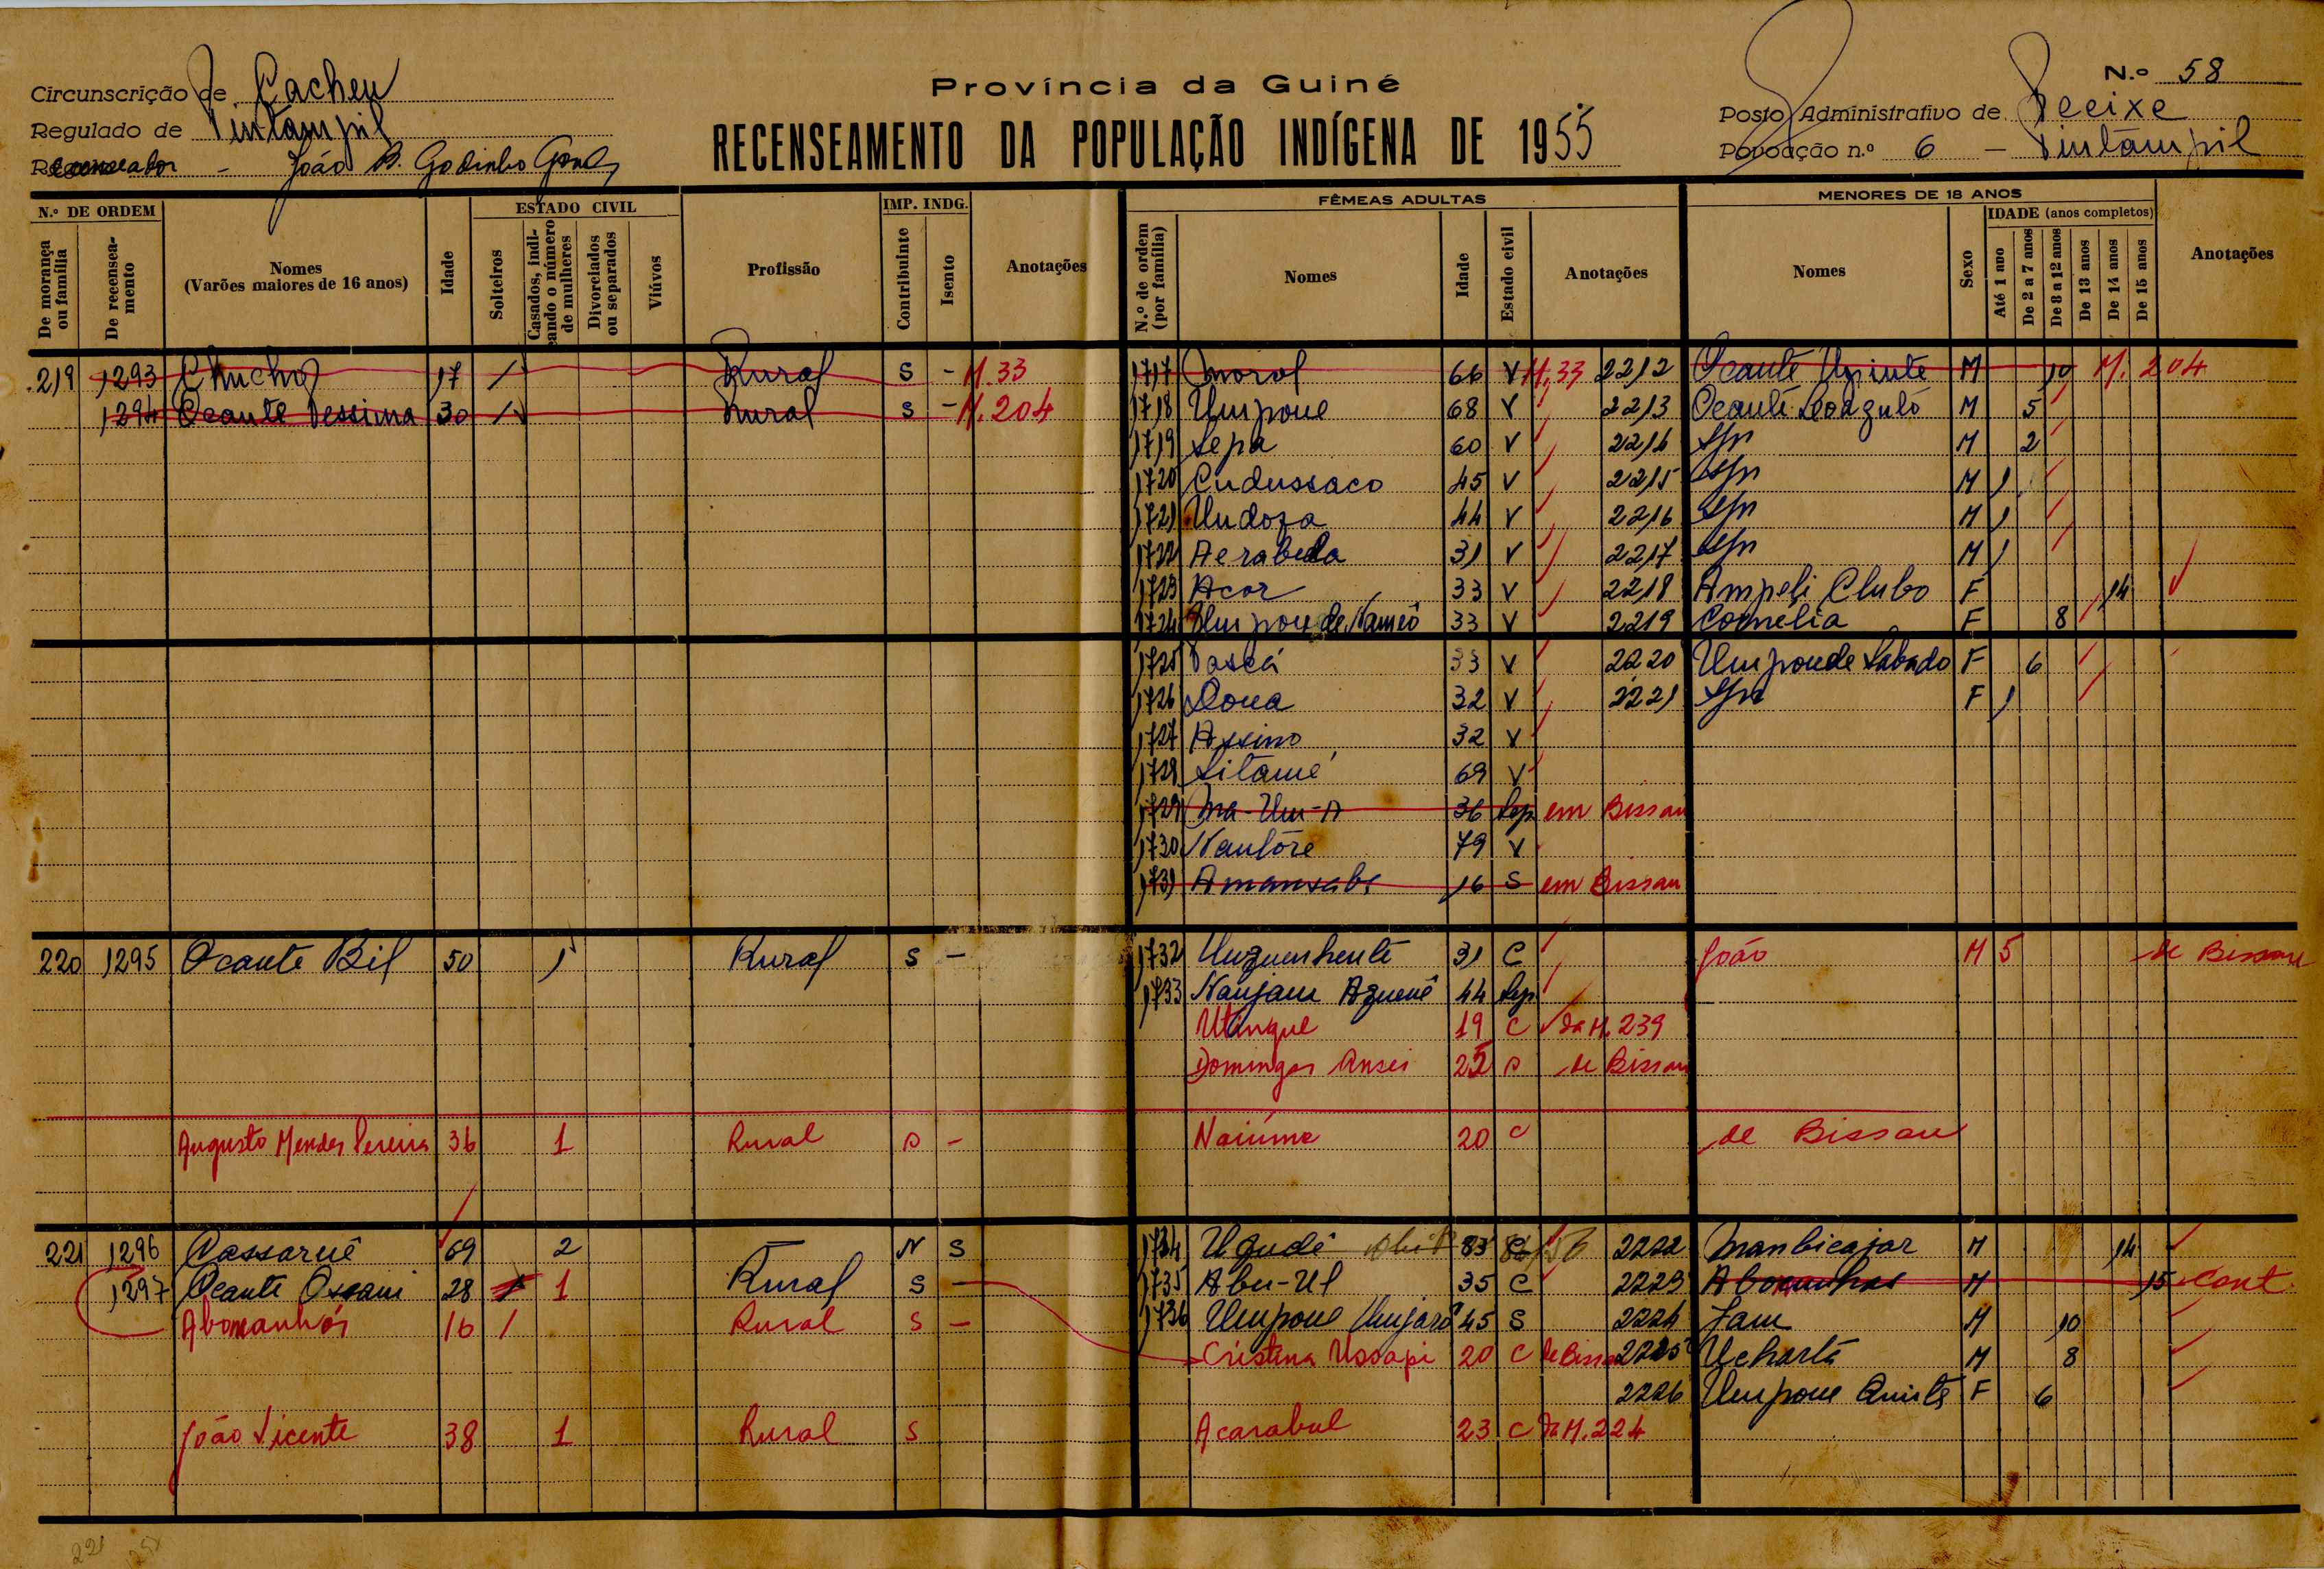 Província da Guiné
N.º 58
Circunscrição de Cacheu
Posto Administrativo de Pecixe
Regulado de Pintampil
RECENSEAMENTO DA POPULAÇÃO INDÍGENA DE 1955
Povoação n.º 6 – Pintampil
Recenseador - João B. Godinho
N.º DE ORDEM
De morança ou família
De recenseamento
Nomes
(Varões maiores de 16 anos)
Idade
ESTADO CIVIL
Solteiros
Casados, indicando o número de mulheres
Divorciados ou separados
Viúvos
Profissão
IMP. INDG.
Contribuinte
Isento
Anotações
FÊMEAS ADULTAS
N.º de ordem (por família)
Nomes
Idade
Estado civil
Anotações
MENORES DE 18 ANOS
Nomes
Sexo
IDADE (anos completos)
Até 1 ano
De 2 a 7 anos
De 8 a 12 anos
De 13 anos
De 14 anos
De 15 anos
Anotações
219 1293 Chucho 17 / Rural S - M.33 1717 66 V M.33 2212 Ocante M 10 M. 204
1294 Ocante Pessima 30 / Rural S - M.204 1718 Umpone 68 V 2213 Ocante M 5
1719 Sepa 60 V 2214 S/n M 2
1720 Cudussaco 45 V 2215 S/n M 1
1721 Undoza 44 V 2216 S/n M 1
1722 Aerabula 31 V 2217 S/n M 1
1723 Acor 33 V 2218 Ampeli Clubo F 14
1724 Umpone de Nameô 33 V 2219 Cornélia F 8
1725 33 V 2220 Umpone de Sabado F 6
1726 Dona 32 V 2221 S/n F 1
1727 Assino 32 V
1728 Sitamé 69 V
1729 Ma-Um-A 36 Sep em Bissau
1730 Nantóre 79 V
1731 Amansabe 16 S em Bissau
220 1295 Ocante Bil 50 1 Rural S - 1732 31 C João M 5 de Bissau
1733 Nanjam 44 Sep
Utingue 19 C da M.239
Domingas Ansei 25 S de Bissau
Augusto Mendes Pereira 36 1 Rural S - Naiúma 20 C de Bissau
221 1296 Cassaruê 69 2 — N S 1734 Ugudé 83 C 2222 Manbicajar M 14
1297 Ocante Ossani 28 1 Rural S - 1735 Abu-Ul 35 C 2223 Abomanhos M 15 Cont.
Abomanhós 16 / Rural S - 1736 Umpone 45 S 2224 Jam M 10
Cristina Ussapi 20 C de Bissau 2225 Ucharte M 8
2226 Umpone Quinta F 6
João Vicente 38 1 Rural S Acarabul 23 C da M.224
221